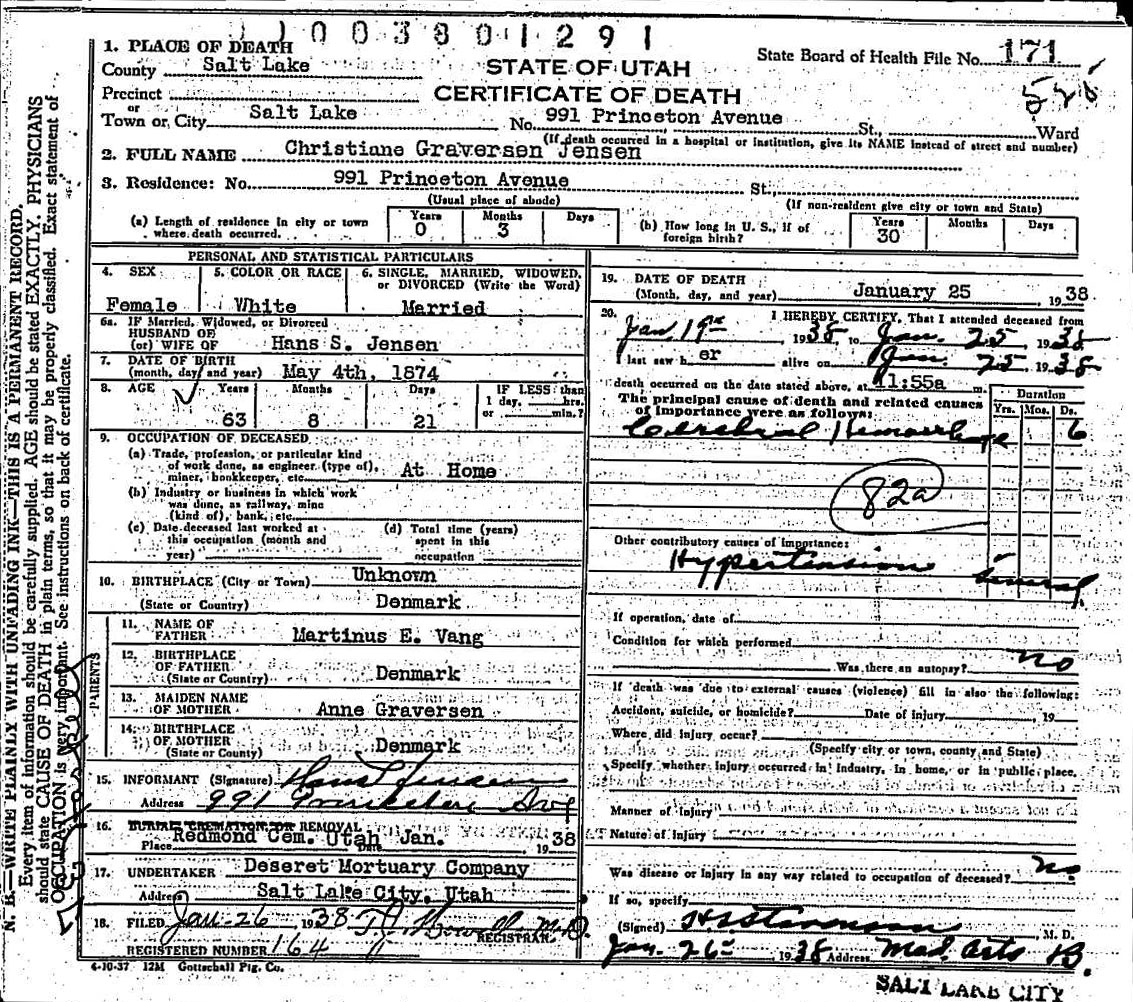 11003801291
State Board of Health File No. 171
STATE OF UTAH
CERTIFICATE OF DEATH
1. PLACE OF DEATH
County Salt Lake
Precinct
or
Town or City Salt Lake No. 991 Princeton Avenue St., Ward
(If death occurred in a hospital or institution, give its NAME instead of street and number)
2. FULL NAME Christiane Graversen Jensen
3. Residence: No. 991 Princeton Avenue St.,
(Usual place of abode) (If non-resident give city or town and State)
(a) Length of residence in city or town where death occurred. Years 0 Months 3 Days
(b) How long in U. S., if of foreign birth? Years 30 Months Days
PERSONAL AND STATISTICAL PARTICULARS
4. SEX Female
5. COLOR OR RACE White
6. SINGLE, MARRIED, WIDOWED, or DIVORCED (Write the Word) Married
6a. IF Married, Widowed, or Divorced
HUSBAND OF
(or) WIFE OF Hans S. Jensen
7. DATE OF BIRTH
(month, day and year) May 4th, 1874
8. AGE Years 63 Months 8 Days 21
IF LESS than
1 day, hrs.
or min.?
9. OCCUPATION OF DECEASED
(a) Trade, profession, or particular kind
of work done, as engineer (type of),
miner, bookkeeper, etc. At Home
(b) Industry or business in which work
was done, as railway, mine
(kind of), bank, etc.
(c) Date deceased last worked at
this occupation (month and
year)
(d) Total time (years)
spent in this
occupation
10. BIRTHPLACE (City or Town) Unknown
(State or Country) Denmark
PARENTS
11. NAME OF
FATHER Martinus E. Vang
12. BIRTHPLACE
OF FATHER
(State or Country) Denmark
13. MAIDEN NAME
OF MOTHER Anne Graversen
14. BIRTHPLACE
OF MOTHER
(State or County) Denmark
15. INFORMANT (Signature) Hans Jensen
Address 991 Ave
16. BURIAL CREMATION, OR REMOVAL
Place Redmond Cem. Utah Date Jan. 1938
17. UNDERTAKER Deseret Mortuary Company
Address Salt Lake City, Utah
18. FILED Jan-26 1938 M.D.
REGISTRAR
REGISTERED NUMBER 164
4-10-37 12M Gottschall Ptg. Co.
19. DATE OF DEATH
(Month, day, and year) January 25 1938
20. I HEREBY CERTIFY, That I attended deceased from
Jan. 19th 1938, to Jan. 25 1938
I last saw her alive on Jan. 25 1938
death occurred on the date stated above, at 11:55a m.
The principal cause of death and related causes
of importance were as follows:
Duration
Yrs. Mos. Ds.
Cerebral Hemorrhage 6
82a
Other contributory causes of importance:
Hypertension
If operation, date of
Condition for which performed
Was there an autopsy? no
If death was due to external causes (violence) fill in also the following:
Accident, suicide, or homicide? Date of injury , 19
Where did injury occur?
(Specify city or town, county and State)
Specify whether injury occurred in industry, in home, or in public place.
Manner of injury
Nature of injury
Was disease or injury in any way related to occupation of deceased? no
If so, specify
(Signed) M. D.
Jan. 26 1938 Address Med. Arts B.
SALT LAKE CITY
N. B.—WRITE PLAINLY WITH UNFADING INK—THIS IS A PERMANENT RECORD.
Every item of information should be carefully supplied. AGE should be stated EXACTLY. PHYSICIANS
should state CAUSE OF DEATH in plain terms, so that it may be properly classified. Exact statement of
OCCUPATION is very important. See instructions on back of certificate.